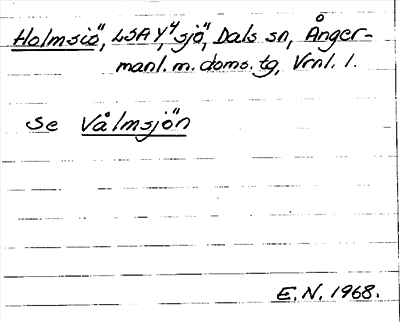 Holmsiö", LSA Y⁴ "sjö", Dals sn, Ånger-
manl. m. doms. tg, Vrnl. l.
se Vålmsjön
E. N. 1968.